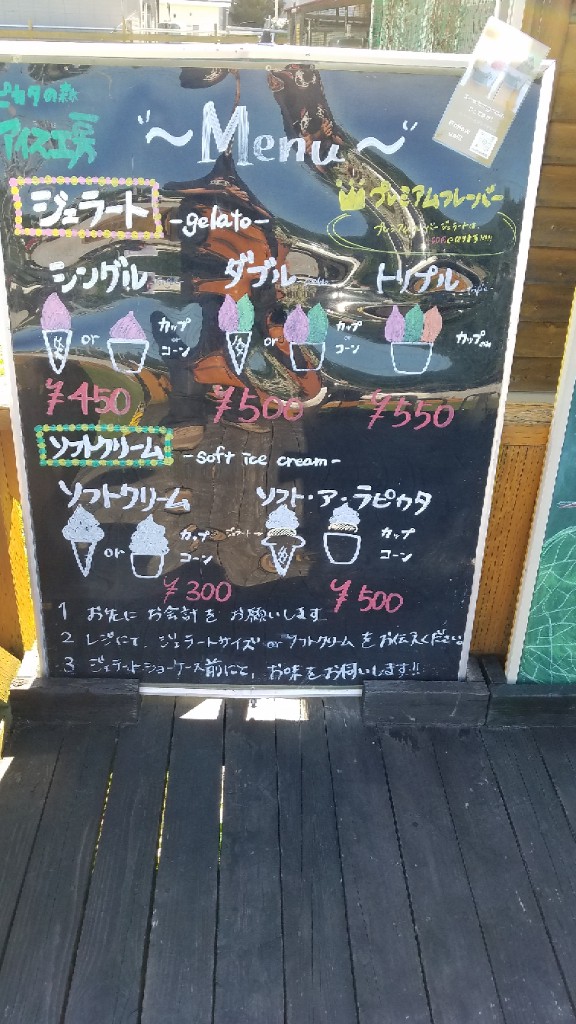 ピカタの森
アイス工房
"～Menu～"
ジェラート -gelato-
プレミアムフレーバー
シングル ダブル トリプル
or カップ or コーン
or カップ or コーン
カップのみ
¥450 ¥500 ¥550
ソフトクリーム -soft ice cream-
ソフトクリーム ソフト・ア・ラピカタ
or カップ コーン
ジェラート→ カップ コーン
¥300 ¥500
1 お先にお会計をお願いします
2 レジにて、ジェラートサイズ or ソフトクリームをお伝えください
3 ジェラートショーケース前にて、お味をお伺いします!!